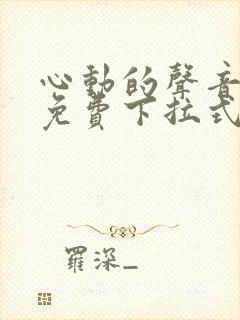 心動的聲音
免費下拉式
羅深_